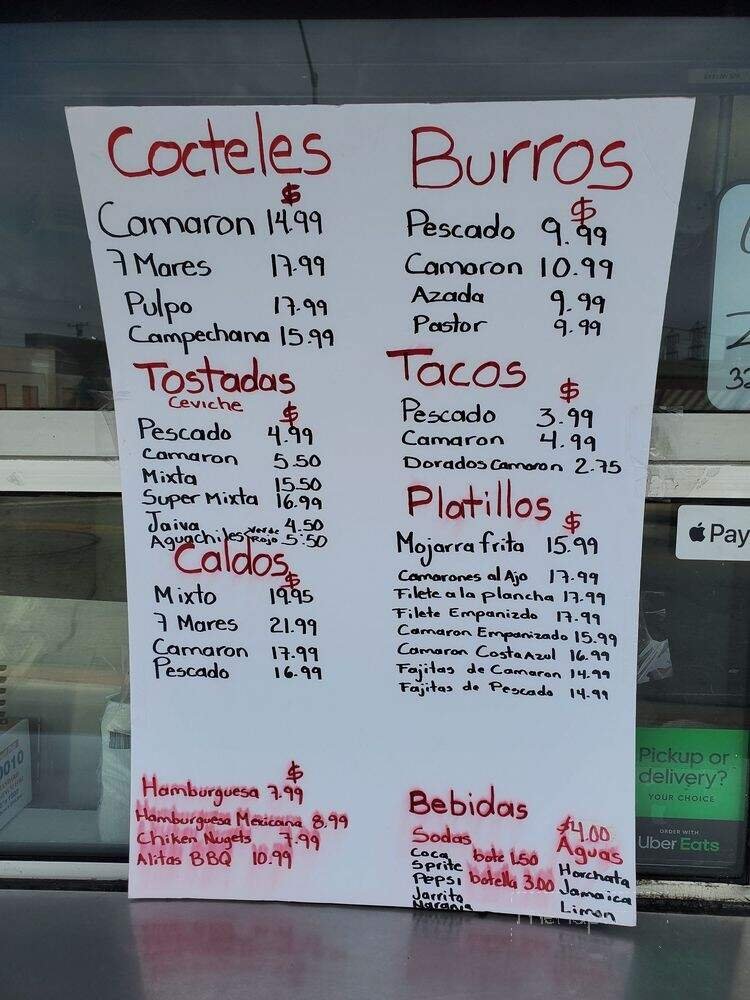 Cocteles
$
Camaron 14.99
7 Mares 17.99
Pulpo 17.99
Campechana 15.99
Tostadas
Ceviche
$
Pescado 4.99
Camaron 5.50
Mixta 15.50
Super Mixta 16.99
Jaiva 4.50
Aguachiles Verde Rojo 5.50
Caldos
$
Mixto 19.95
7 Mares 21.99
Camaron 17.99
Pescado 16.99
$
Hamburguesa 7.99
Hamburguesa Mexicana 8.99
Chiken Nugets 7.99
Alitas BBQ 10.99
Burros
$
Pescado 9.99
Camaron 10.99
Azada 9.99
Pastor 9.99
Tacos
$
Pescado 3.99
Camaron 4.99
Dorados Camaron 2.75
Platillos
$
Mojarra frita 15.99
Camarones al Ajo 17.99
Filete a la plancha 17.99
Filete Empanizdo 17.99
Camaron Empanizado 15.99
Camaron Costa Azul 16.99
Fajitas de Camaron 14.99
Fajitas de Pescado 14.99
Bebidas
Sodas
Coca
Sprite
Pepsi
Jarrito
Naranja
bote 1.50
botella 3.00
$4.00
Aguas
Horchata
Jamaica
Limon
Pay
Pickup or
delivery?
YOUR CHOICE
ORDER WITH
Uber Eats